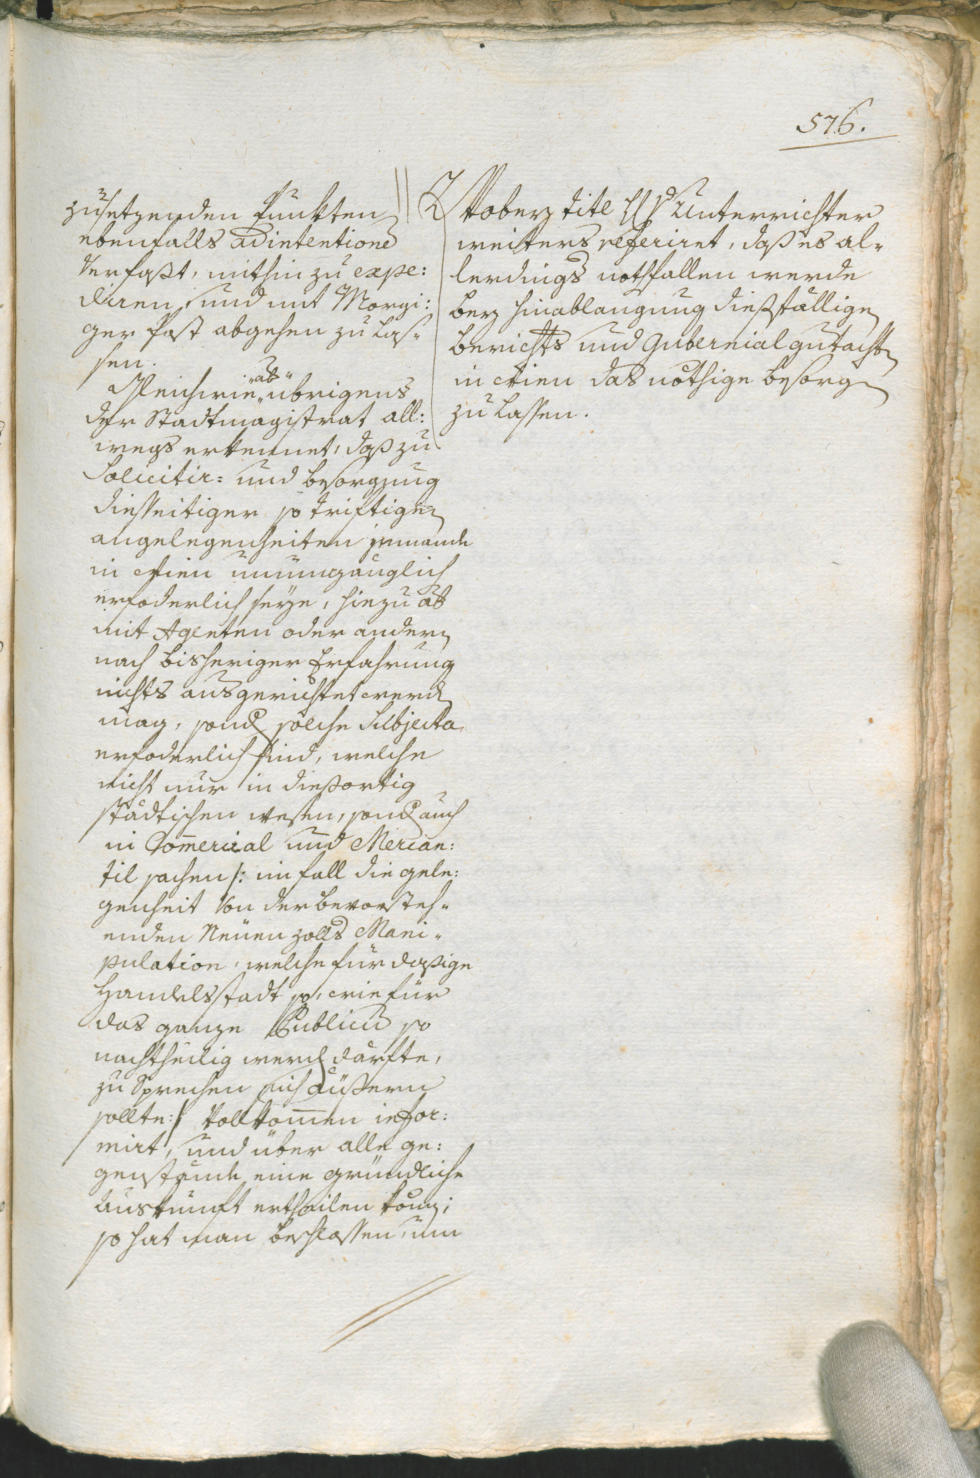 576.
zusetzenden Punkten
ebenfalls ad intentione
verfaßt, mithin zu expe:
diren, und mit Morgi:
ger Post abgehen zu las-
sen.
Gleichwie „ab“ übrigens
der Stadtmagistrat all:
wegs erkennet, daß zu
Solicitir: und besorgung
dießeitiger so triftigen
angelegenheiten jemande
in Wien unumgänglich
erfoderlich seye, hiezu ab
mit Agenten oder andern
nach bisheriger Erfahrung
nichts ausgerichtet werd
mag, sond solche Subjecta
erfoderlich sind, welche
nicht nur in dießortig
städtischen wesen, sond auch
in Comercial und Mercan:
til sachen /: im fall die gele:
genheit von der bevorsteh-
enden Neuen zolls Mani-
pulation, welche für dasige
Handelsstadt so, wie für
das ganze Publicu so
nachtheilig werd därfte,
zu Sprechen sich äußern
sollte :/ vollkomen infor:
mirt, und über alle ge:
genstände eine gründliche
Auskunft ertheilen könn;
so hat man beschlossen, um
Wobey titl H: Unterrichter
weiters referiret, daß es al-
lerdings nothfallen werde
bey hinablangung dießfällige
berichts und Gubernial gutacht
in Wien das nöthige besorg
zu lassen.